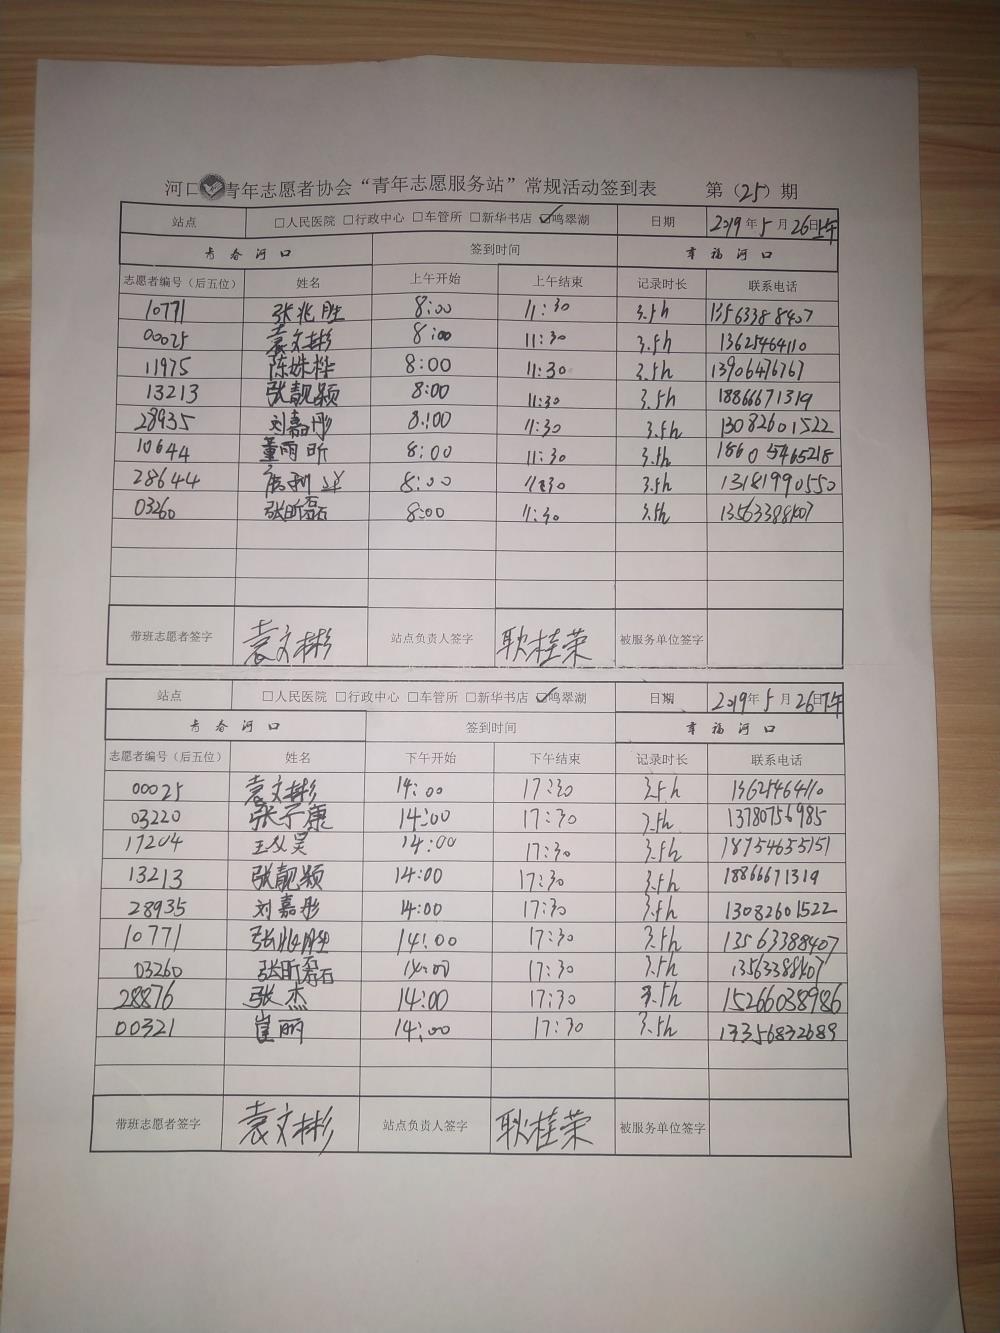 河口青年志愿者协会“青年志愿服务站”常规活动签到表 第（25）期
站点 □人民医院 □行政中心 □车管所 □新华书店 ☑鸣翠湖 日期 2019年5月26日上午
青春河口 签到时间 幸福河口
志愿者编号（后五位） 姓名 上午开始 上午结束 记录时长 联系电话
10771 张兆胜 8:00 11:30 3.5h 13563388407
00025 袁文彬 8:00 11:30 3.5h 13625464110
11975 陈姝桦 8:00 11:30 3.5h 13906476767
13213 张靓颖 8:00 11:30 3.5h 18866671319
28935 刘嘉彤 8:00 11:30 3.5h 13082601522
10644 董雨昕 8:00 11:30 3.5h 18605465218
28644 8:00 11:30 3.5h 13181990550
03260 张昕磊 8:00 11:30 3.5h 13563388407
带班志愿者签字 袁文彬 站点负责人签字 耿桂荣 被服务单位签字
站点 □人民医院 □行政中心 □车管所 □新华书店 ☑鸣翠湖 日期 2019年5月26日下午
青春河口 签到时间 幸福河口
志愿者编号（后五位） 姓名 下午开始 下午结束 记录时长 联系电话
00025 袁文彬 14:00 17:30 3.5h 13625464110
03220 张子康 14:00 17:30 3.5h 13780756985
17204 王义昊 14:00 17:30 3.5h 18754655151
13213 张靓颖 14:00 17:30 3.5h 18866671319
28935 刘嘉彤 14:00 17:30 3.5h 13082601522
10771 张兆胜 14:00 17:30 3.5h 13563388407
03260 张昕磊 14:00 17:30 3.5h 13563388407
28876 张杰 14:00 17:30 3.5h 15266038986
00321 崔丽 14:00 17:30 3.5h 13356832689
带班志愿者签字 袁文彬 站点负责人签字 耿桂荣 被服务单位签字